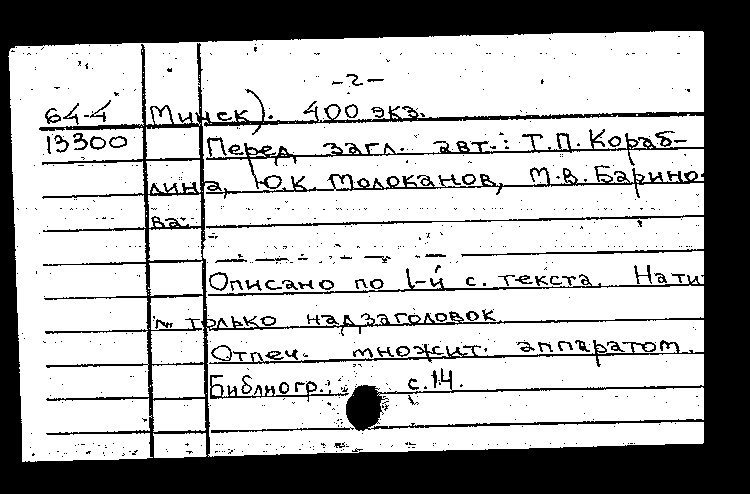 -2-
64-4 Минск). 400 экз.
13300 Перед загл. авт.: Т.П. Кораб-
лина, Ю.К. Молоканов, М.В. Барино-
ва.
Описано по 1-й с. текста. На тит.
л. только надзаголовок
Отпеч. множит. аппаратом.
Библиогр.: с.14.